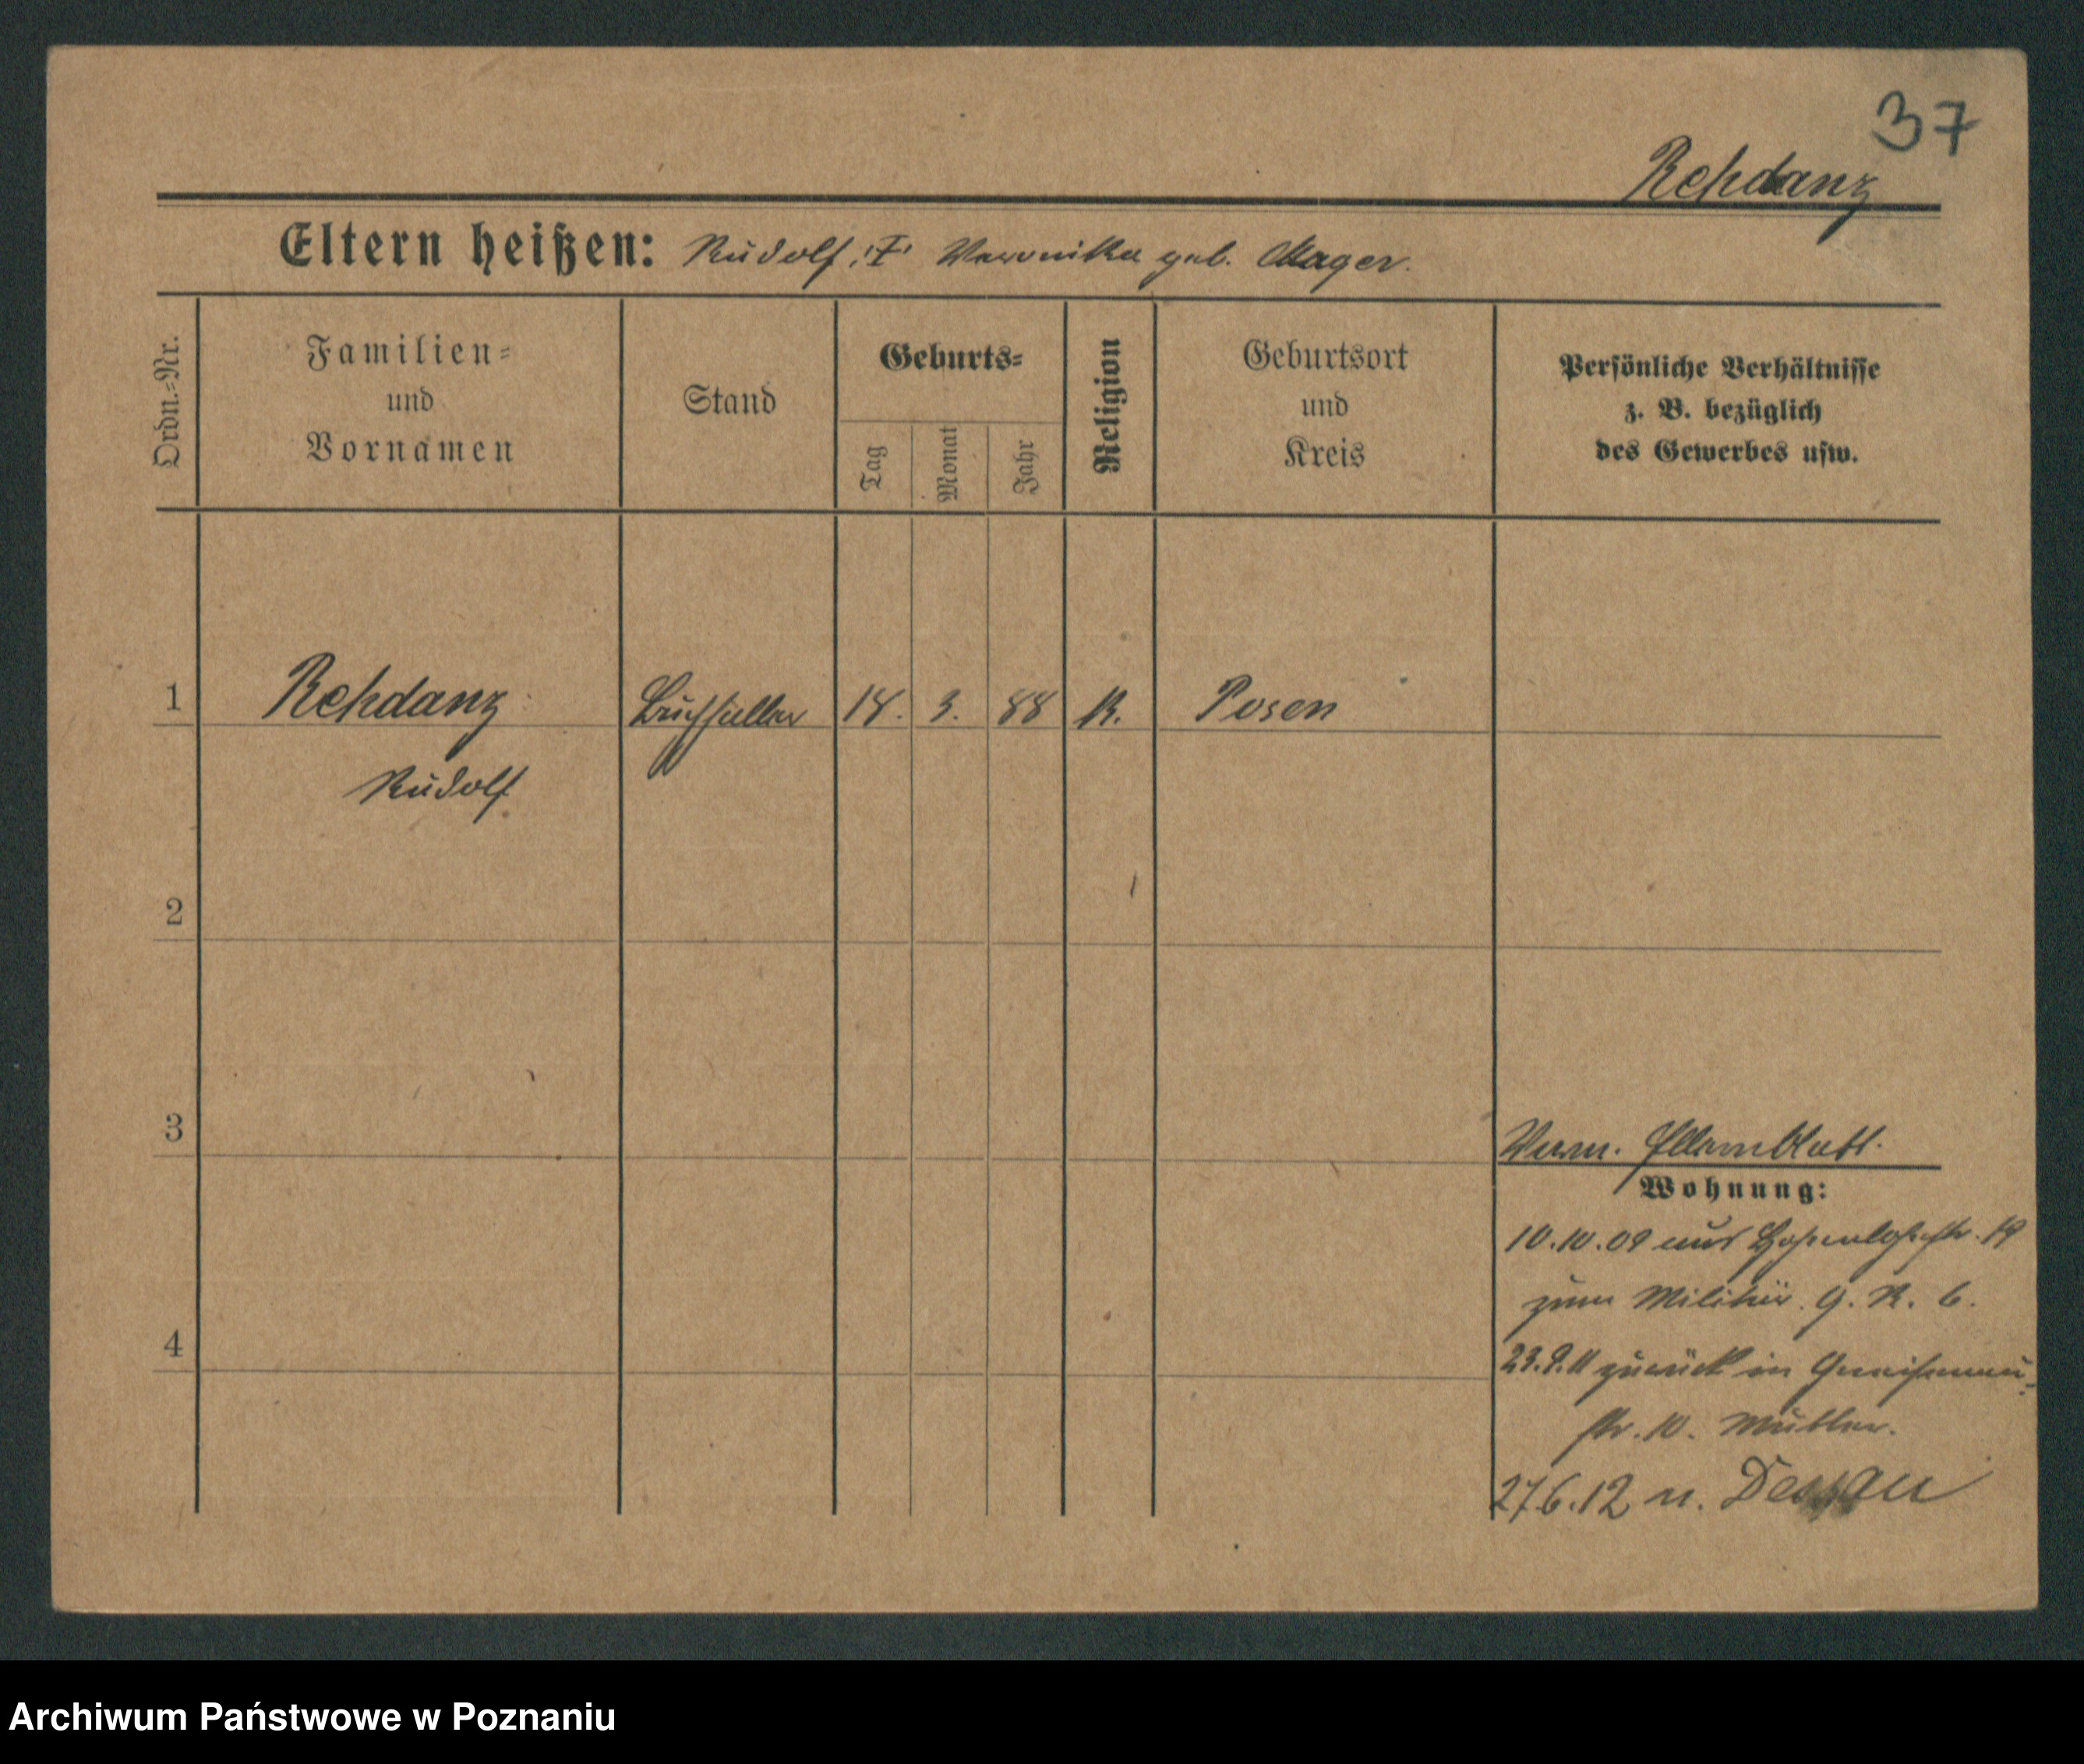 37
Rehdanz
Eltern heißen: Rudolf, Veronika geb. Mager.
Ordn.-Nr.
Familien-
und
Vornamen
Stand
Geburts-
Tag
Monat
Jahr
Religion
Geburtsort
und
Kreis
Persönliche Verhältnisse
z. B. bezüglich
des Gewerbes usw.
1 Rehdanz 18. 3. 88 K. Posen
Rudolf
2
3
Elternblatt.
Wohnung:
10.10.09 aus Hohenlohestr. 19
zum Militär. G. R. 6.
23.9.11 zurück in Gneisenau-
str. 10. Mutter.
27.6.12 n. Dessau
4
Archiwum Państwowe w Poznaniu